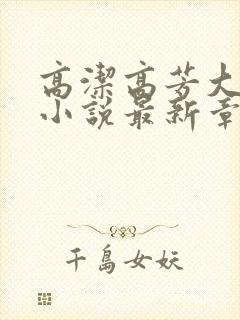 高潔高芳大
小說最新章
千島女妖